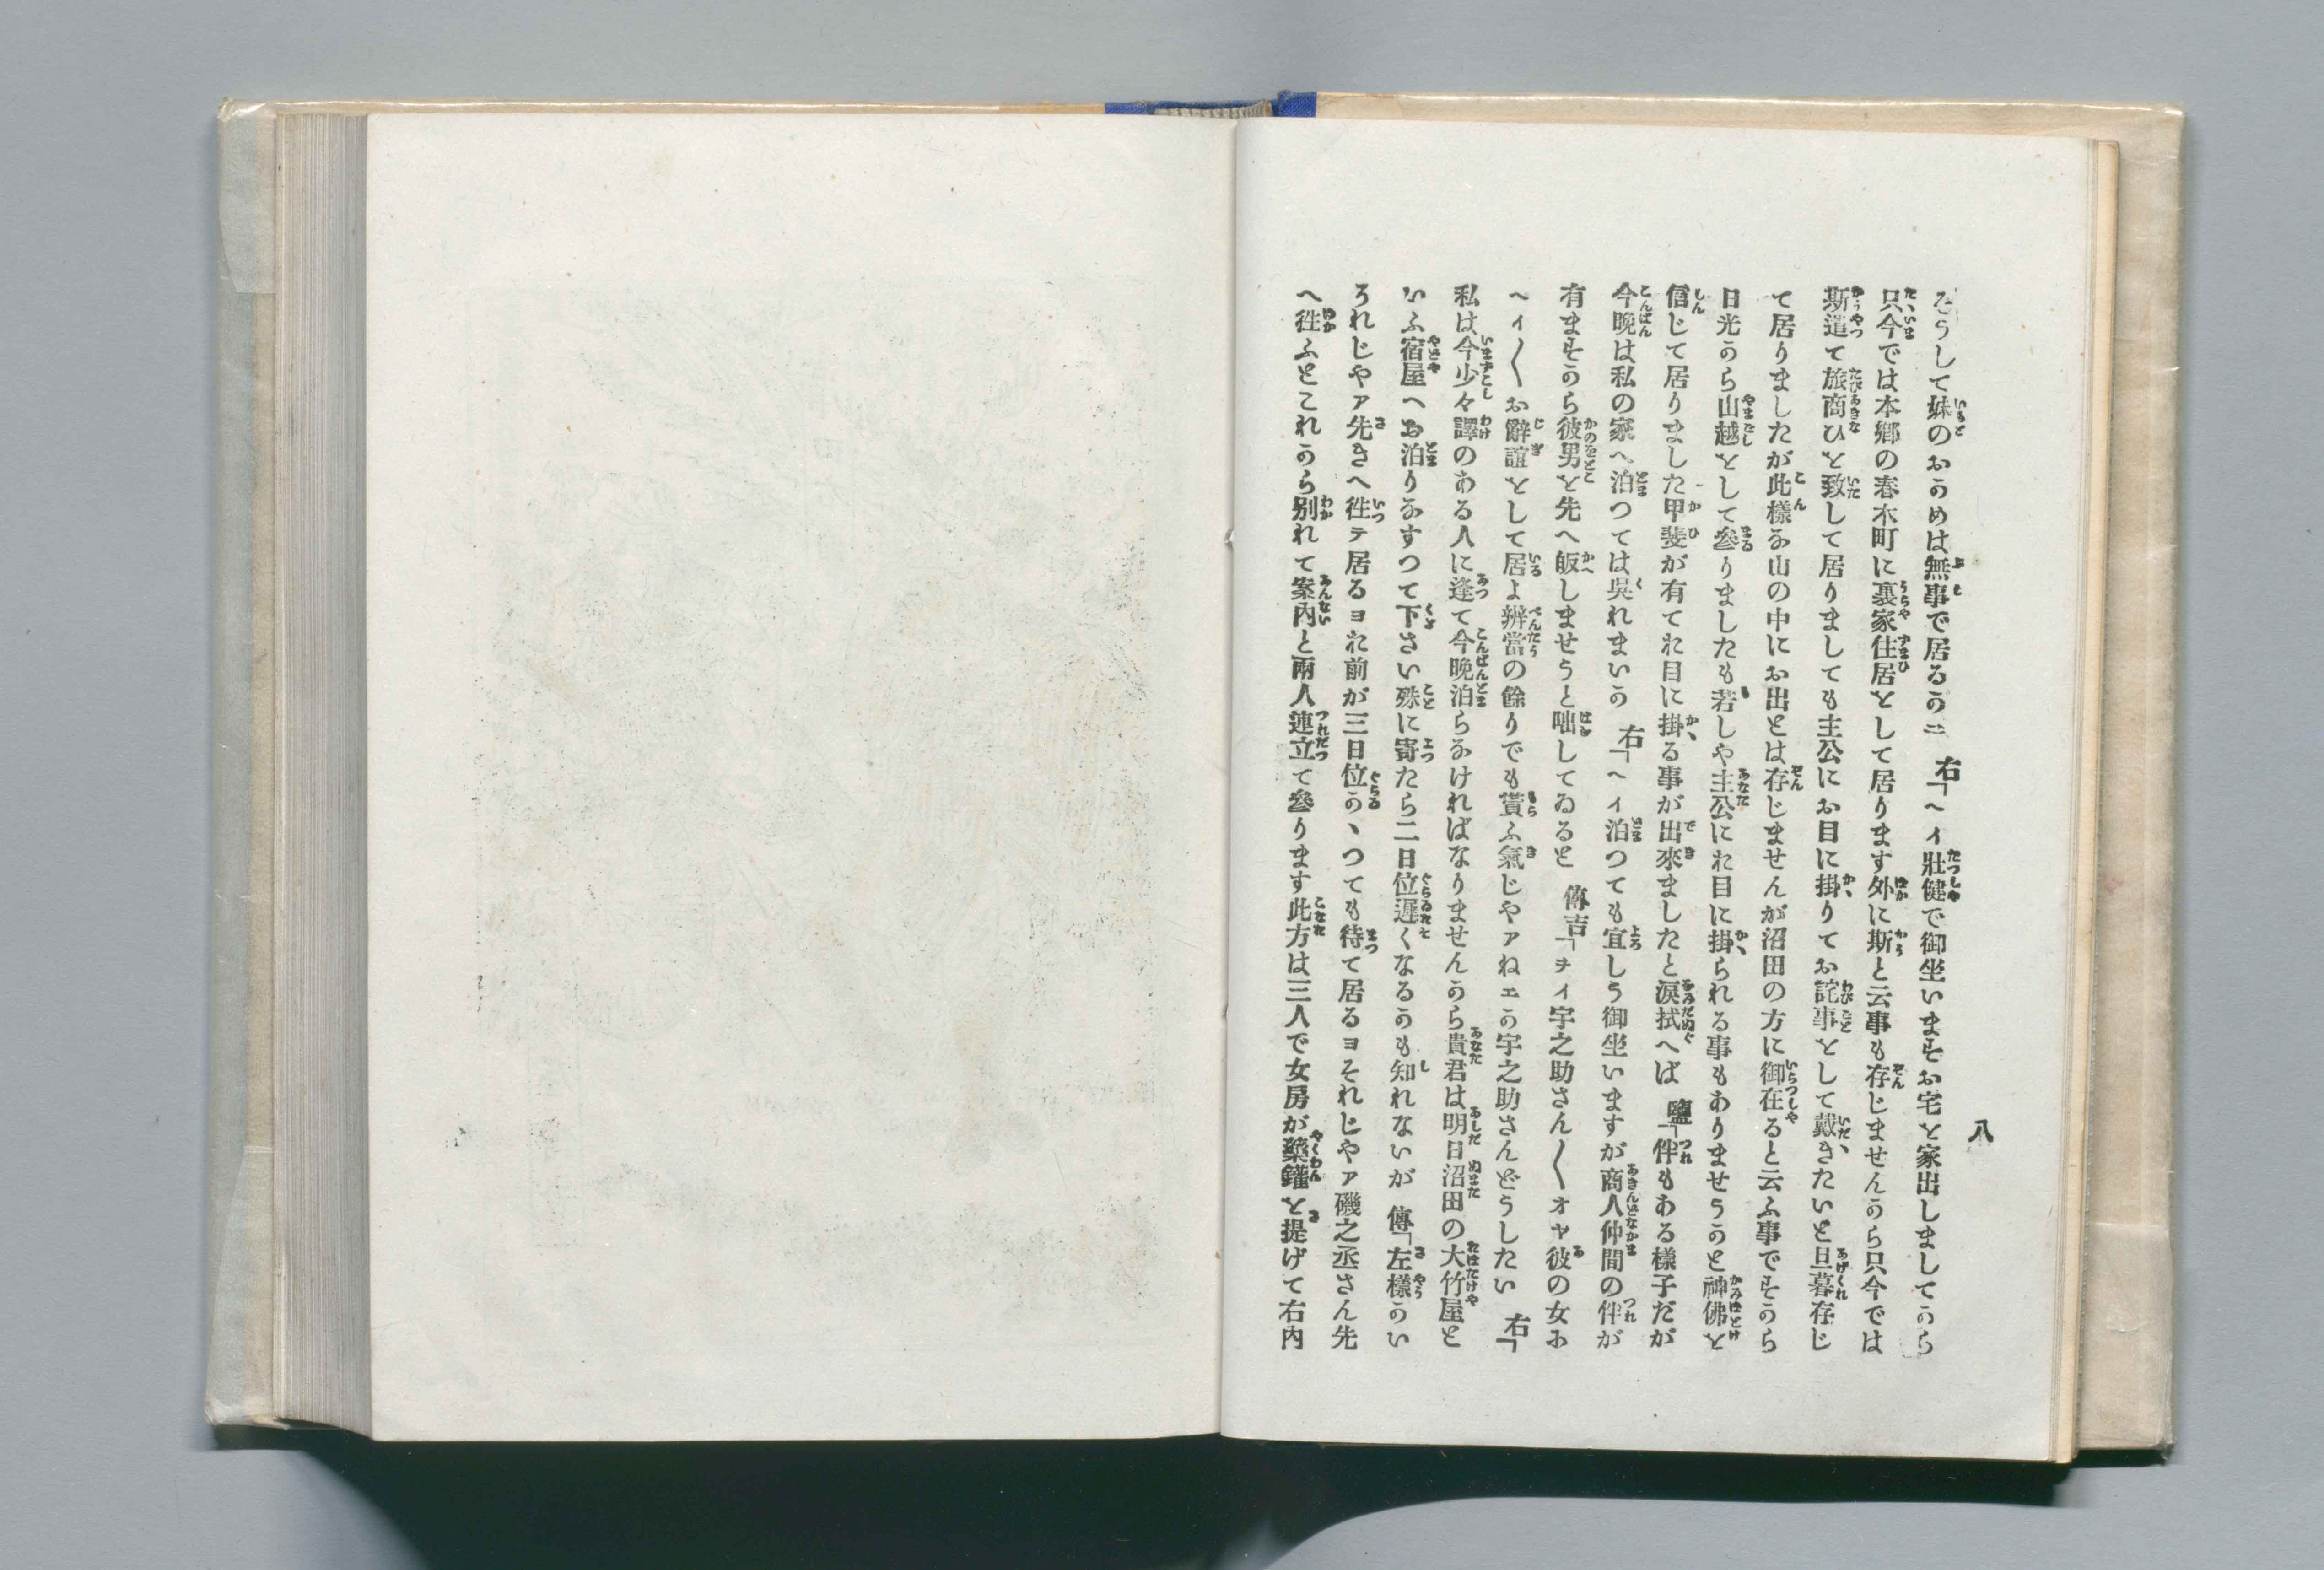 八
そうして妹のおかめは無事で居るかエ　右「ヘイ壯健で御坐いますお宅を家出しましてから
只今では本郷の春木町に裏家住居をして居ります外に斯と云事も存じませんから只今では
斯遣て旅商ひを致して居りましても主公にお目に掛りてお詫事をして戴きたいと旦暮存じ
て居りましたが此樣な山の中にお出とは存じませんが沼田の方に御在ると云ふ事ですから
日光から山越をして參りましたも若しや主公にお目に掛られる事もありませうかと神佛を
信じて居りました甲斐が有てお目に掛る事が出來ましたと涙拭へば　鹽「伴もある樣子だが
今晩は私の家へ泊つては呉れまいか　右「ヘイ泊つても宜しう御坐いますが商人仲間の伴が
有ますから彼男を先へ皈しませうと咄してゐると　傳吉「ヲイ宇之助さん〳〵オヤ彼の女に
ヘイ〳〵お辭誼をして居よ辨當の餘りでも貰ふ氣じやアねエか宇之助さんどうしたい　右「
私は今少々譯のある人に逢て今晩泊らなければなりませんから貴君は明日沼田の大竹屋と
いふ宿屋へお泊りなすつて下さい殊に寄たら二日位遲くなるかも知れないが　傳「左樣かい
それじやア先きへ徃テ居るヨお前が三日位かゝつても待て居るヨそれじやア磯之丞さん先
へ徃ふとこれから別れて案内と兩人連立て參ります此方は三人で女房が藥鑵を提げて右内